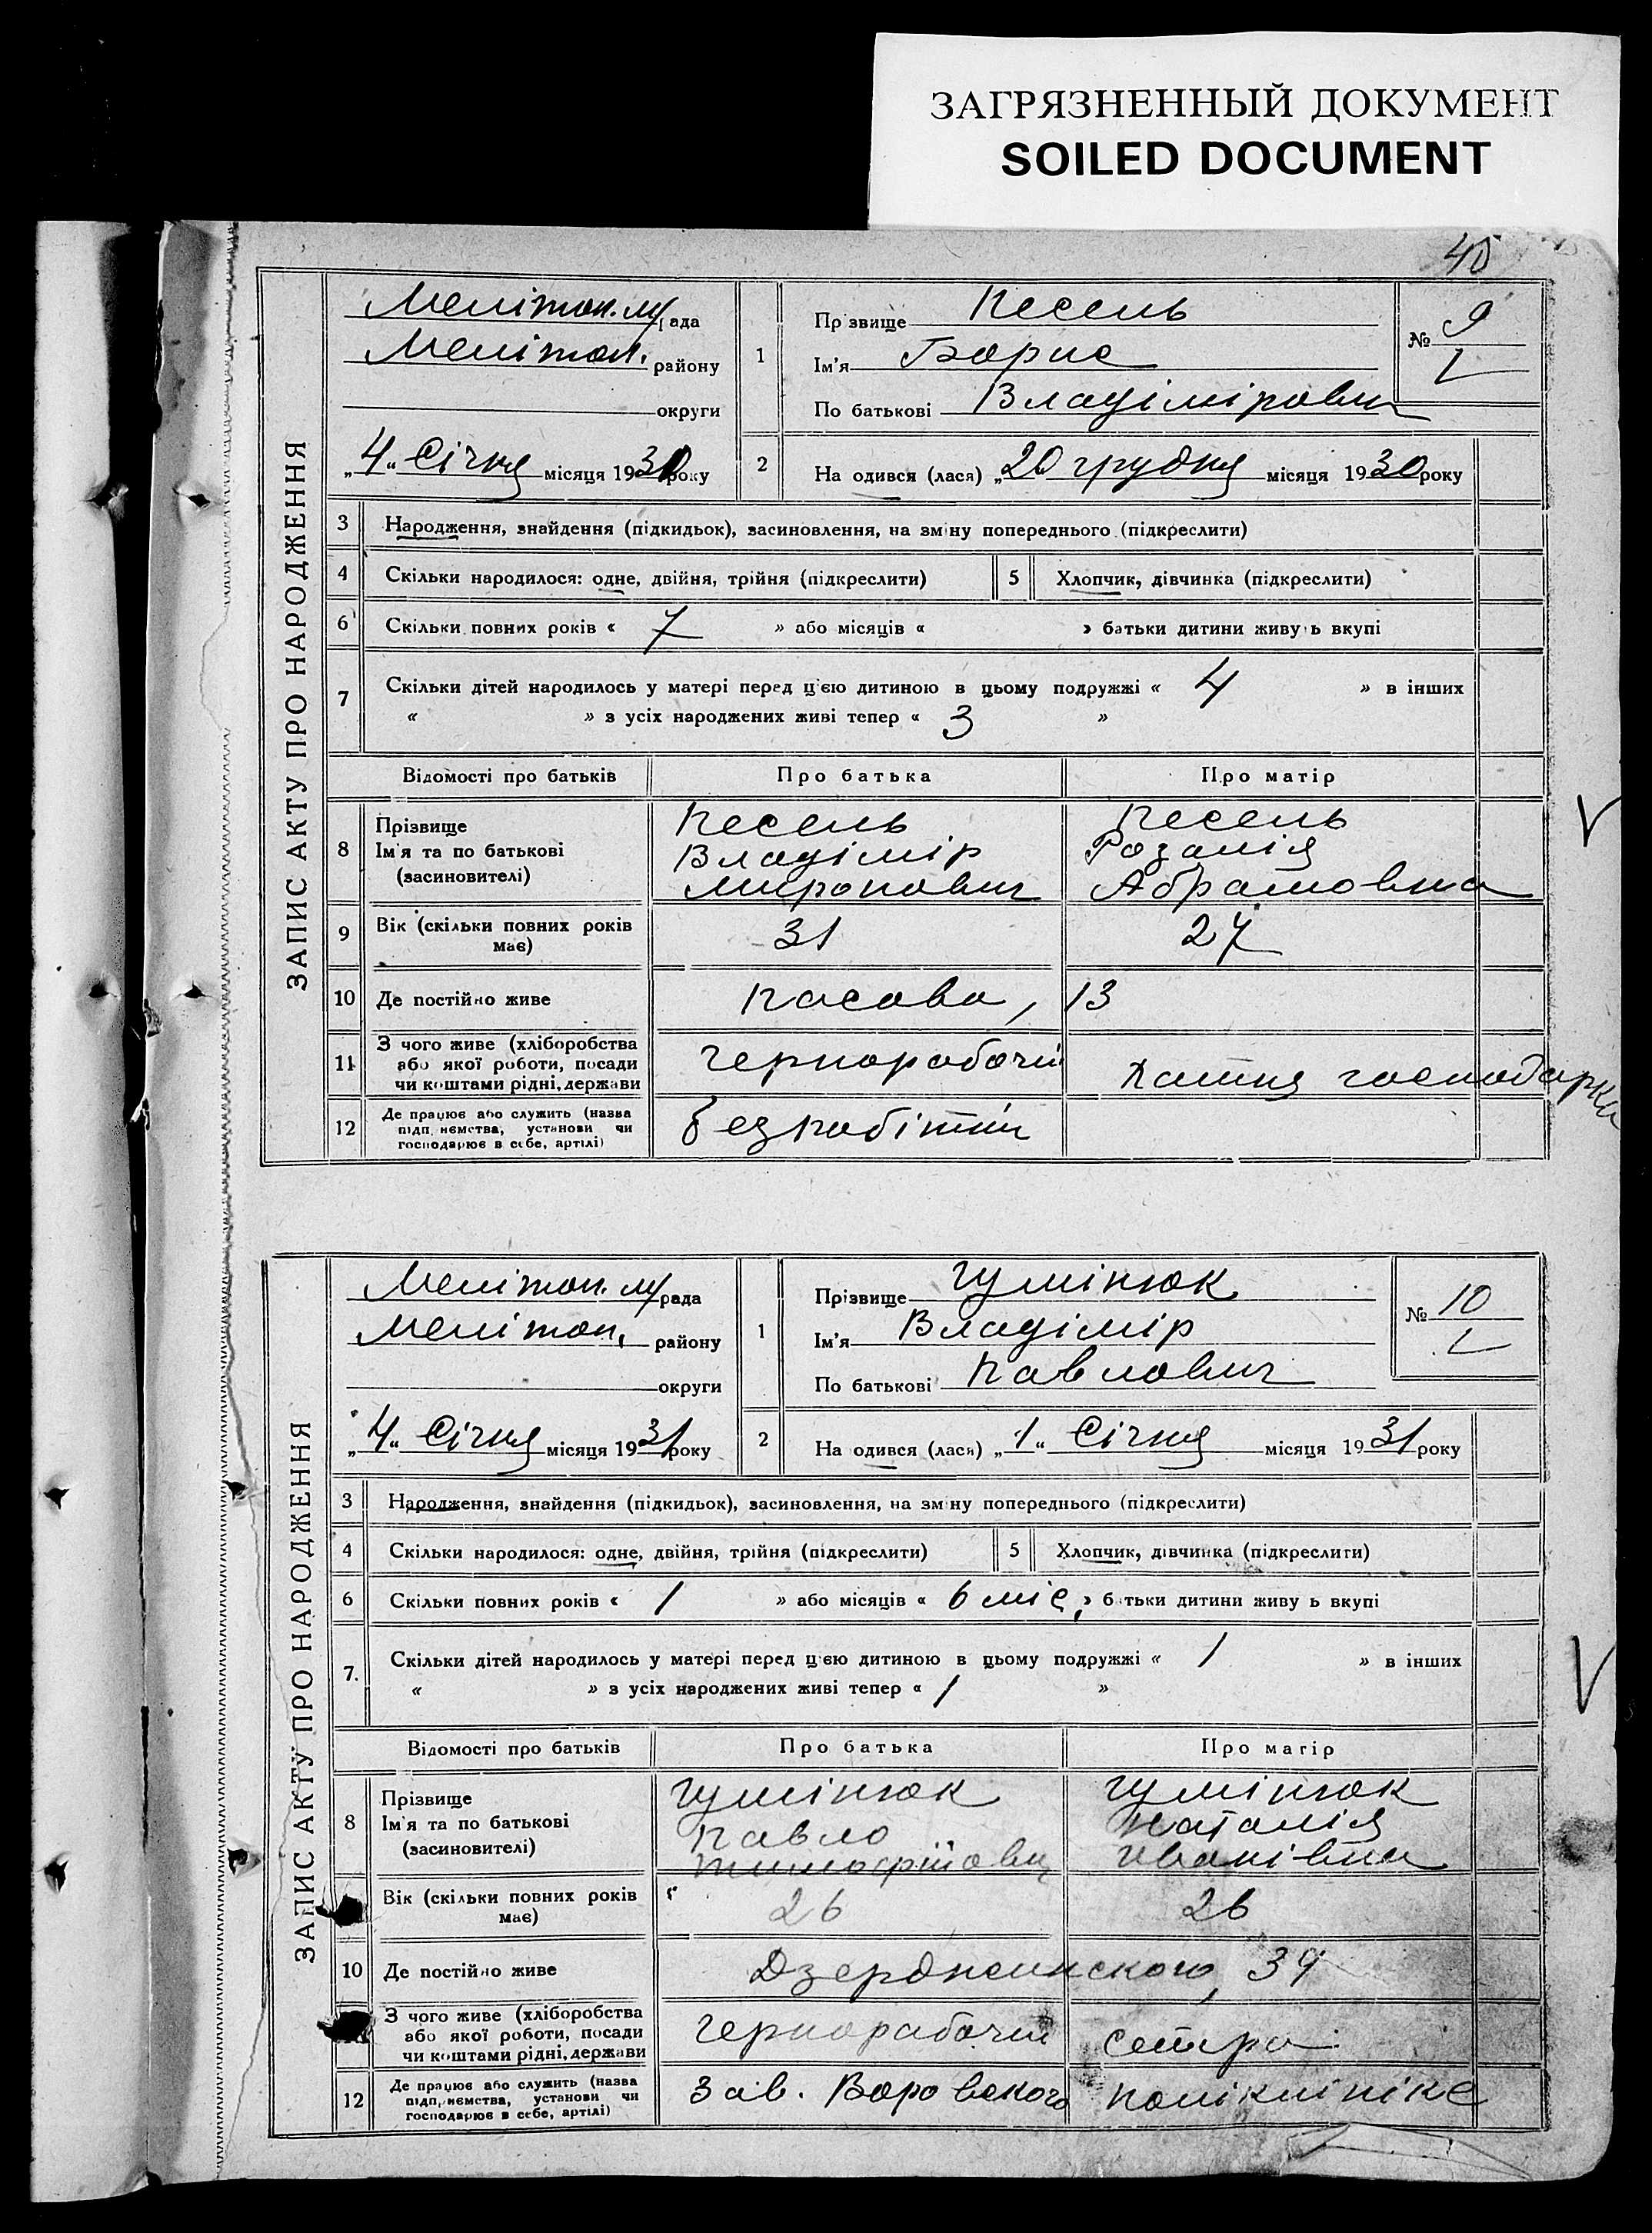 ЗАГРЯЗНЕННЫЙ ДОКУМЕНТ
SOILED DOCUMENT
40
ЗАПИС АКТУ ПРО НАРОДЖЕННЯ
Мелітоп. м/рада
Мелітоп. району
округи
„4“ Січня місяця 1930 року
1
Прізвище Кесель
Ім'я Борис
По батькові Владімірович
№ 9
2
На одився (лася) „20 грудня місяця 1930 року
3 Народження, знайдення (підкидьок), засиновлення, на зміну попереднього (підкреслити)
4 Скільки народилося: одне, двійня, трійня (підкреслити) 5 Хлопчик, дівчинка (підкреслити)
6 Скільки повних років « 7 » або місяців « » батьки дитини живуть вкупі
7 Скільки дітей народилось у матері перед цією дитиною в цьому подружжі « 4 » в інших
« » з усіх народжених живі тепер « 3 »
Відомості про батьків Про батька Про матір
8 Прізвище Ім'я та по батькові (засиновителі)
Кесель Владімір Миронович
Кесель Розалія Абрамовна
9 Вік (скільки повних років має) 31 27
10 Де постійно живе 13
11 З чого живе (хліборобства або якої роботи, посади чи коштами рідні, держави
чернорабочий Хатня господарка
12 Де працює або служить (назва підприємства, установи чи господарює в себе, артілі)
безробітній
ЗАПИС АКТУ ПРО НАРОДЖЕННЯ
Мелітоп. м/рада
Мелітоп. району
округи
„4“ Січня місяця 1931 року
1
Прізвище Гумінюк
Ім'я Владімір
По батькові Павлович
№ 10
2
На одився (лася) „1“ Січня місяця 1931 року
3 Народження, знайдення (підкидьок), засиновлення, на зміну попереднього (підкреслити)
4 Скільки народилося: одне, двійня, трійня (підкреслити) 5 Хлопчик, дівчинка (підкреслити)
6 Скільки повних років « 1 » або місяців « 6 міс. » батьки дитини живуть вкупі
7. Скільки дітей народилось у матері перед цією дитиною в цьому подружжі « 1 » в інших
« » з усіх народжених живі тепер « 1 »
Відомості про батьків Про батька Про матір
8 Прізвище Ім'я та по батькові (засиновителі)
Гумінюк Павло
Гумінюк Наталія Іванівна
Вік (скільки повних років має) 26 26
10 Де постійно живе Дзержинського, 39
З чого живе (хліборобства або якої роботи, посади чи коштами рідні, держави
чернорабочий сестра
12 Де працює або служить (назва підприємства, установи чи господарює в себе, артілі)
Зав. Воровського поліклініке